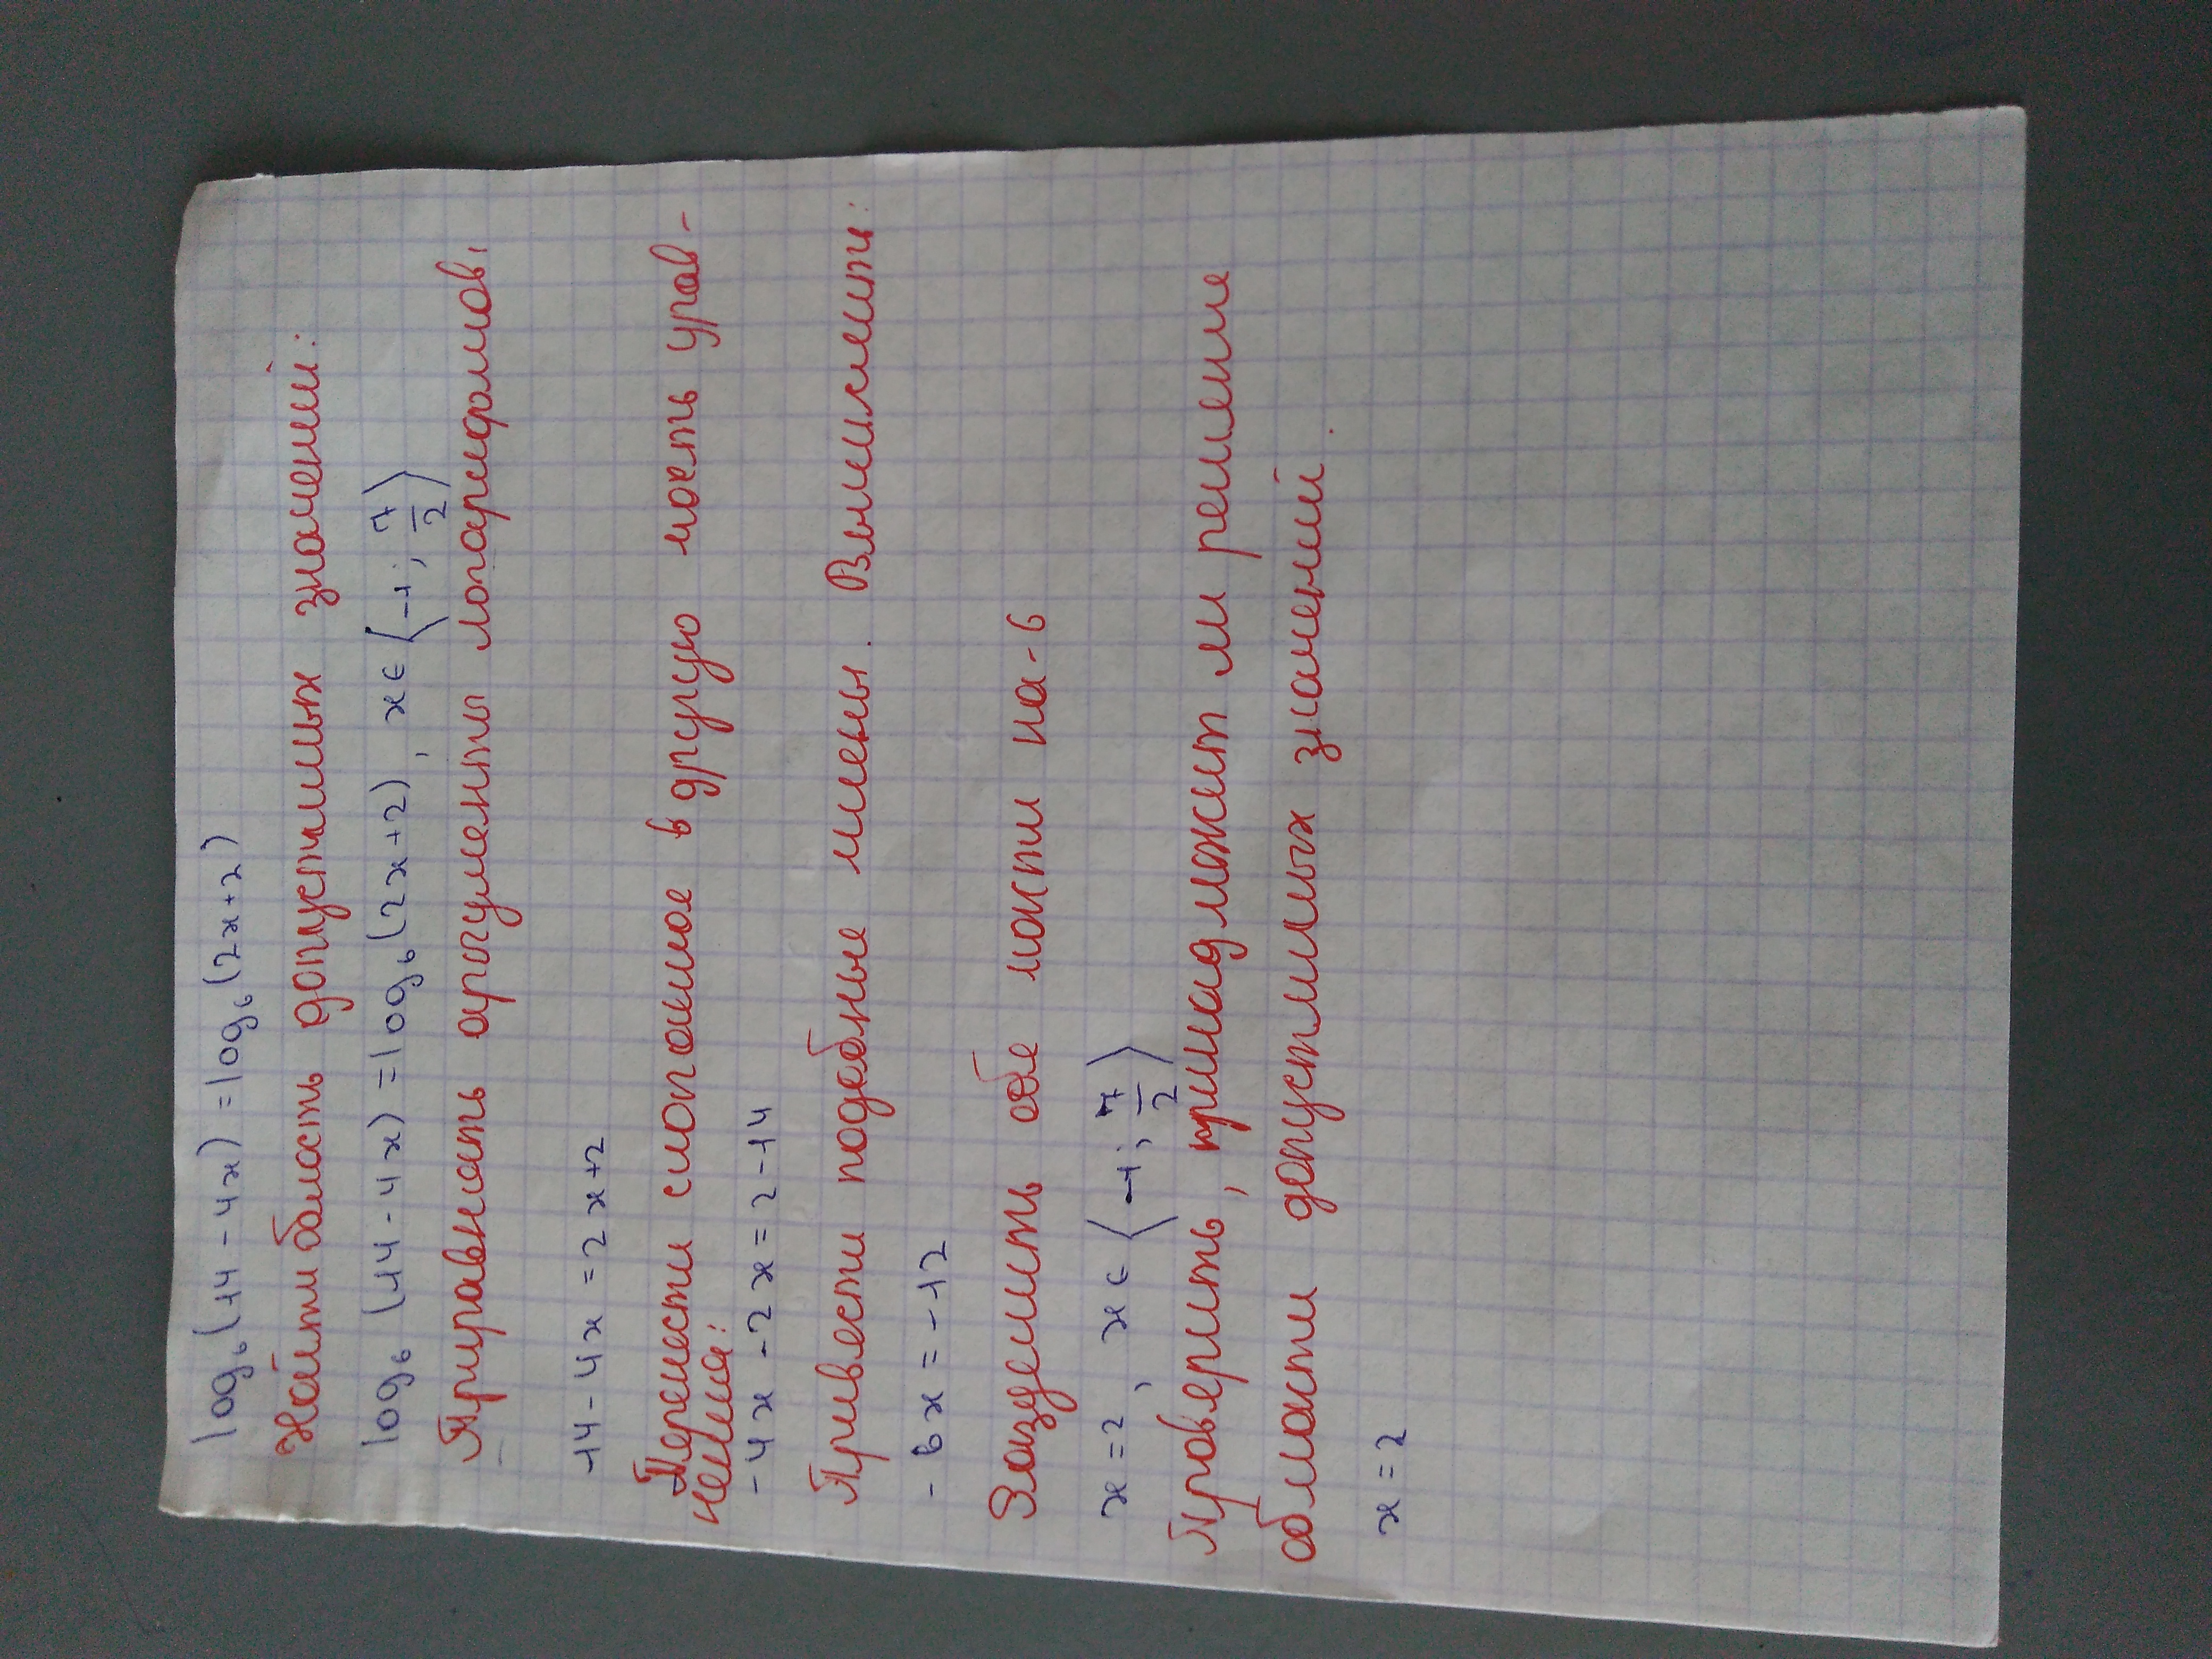 log₆(14-4x)=log₆(2x+2)
Найти область допустимых значений:
log₆(14-4x)=log₆(2x+2), x∈⟨-1;7/2⟩
Приравнять аргументы логарифмов,
14-4x=2x+2
Перенести слогаемое в другую часть урав-
нения:
-4x-2x=2-14
Привести подобные члены. Вычислить:
-6x=-12
Разделить обе части на-6
x=2, x∈⟨-1;7/2⟩
Проверить, принадлежит ли решение
области допустимых значений.
x=2